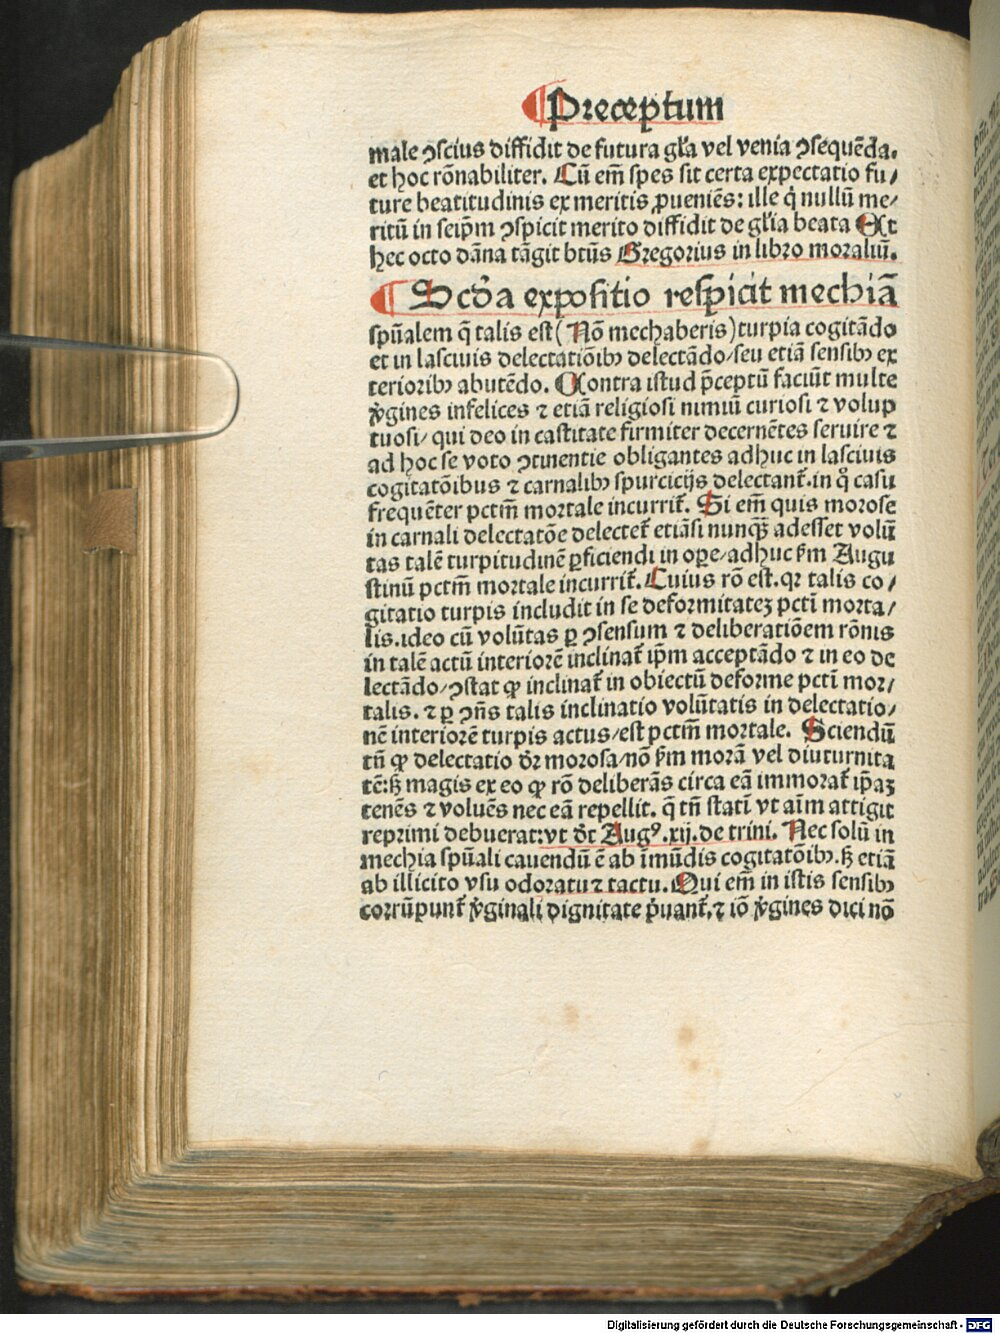 ¶ Preceptum
male ꝯscius diffidit de futura gl̃a vel venia ꝯsequēda.
et hoc rōnabiliter. Cū em̄ spes sit certa expectatio fu/
ture beatitudinis ex meritis ꝓueniēs: ille q̇ nullū me/
ritū in seip̄m ꝯspicit merito diffidit de gl̃ia beata Et
hec octo dāna tāgit btūs Gregorius in libro moraliū.
¶ Scďa expositio respicit mechiā
sp̄ualem q̄ talis est (Nō mechaberis) turpia cogitādo
et in lasciuis delectatiōibꝫ delectādo/seu etiā sensibꝫ ex
terioribꝫ abutēdo. Contra istud p̄ceptū faciūt multe
v̓gines infelices ⁊ etiā religiosi nimiū curiosi ⁊ volup
tuosi/ qui deo in castitate firmiter decernētes seruire ⁊
ad hoc se voto ꝯtinentie obligantes adhuc in lasciuis
cogitatōibus ⁊ carnalibꝫ spurcicijs delectant̃.in qͦ casu
frequēter pctm̄ mortale incurrit̃. Si em̄ quis morose
in carnali delectatōe delectet̃ etiāsi nunqꝫ̄ adesset volū
tas talē turpitudinē ꝑficiendi in oꝑe/adhuc ẜm Augu
stinū pctm̄ mortale incurrit̃. Cuius rō est.qꝛ talis co/
gitatio turpis includit in se deformitateꝫ pcti morta/
lis.ideo cū volūtas ꝑ ꝯsensum ⁊ deliberatiōem rōnis
in talē actū interiorē inclinat̃ ip̄m acceptādo ⁊ in eo de
lectādo/ꝯstat ꝙ inclinat̃ in obiectū deforme pcti mor/
talis. ⁊ ꝑ ꝯn̄s talis inclinatio volūtatis in delectatio/
nē interiorē turpis actus/est pctm̄ mortale. Sciendū
tn̄ ꝙ delectatio dr̄ morosa/nō ẜm morā vel diuturnita
tē:sꝫ magis ex eo ꝙ rō deliberās circa eā immorat̃ ip̄aꝫ
tenēs ⁊ voluēs nec eā repellit. q̄ tn̄ stati vt aīm attigit
reprimi debuerat:vt dr̄ Augꝰ.xij.de trini. Nec solū in
mechia sp̄uali cauendū ē ab īmūdis cogitatōibꝫ.sꝫ etiā
ab illicito vsu odoratu ⁊ tactu. Qui em̄ in istis sensibꝫ
corrūpunt̃ v̓ginali dignitate p̓uant̃,⁊ iō v̓gines dici nō
Digitalisierung gefördert durch die Deutsche Forschungsgemeinschaft - DFG